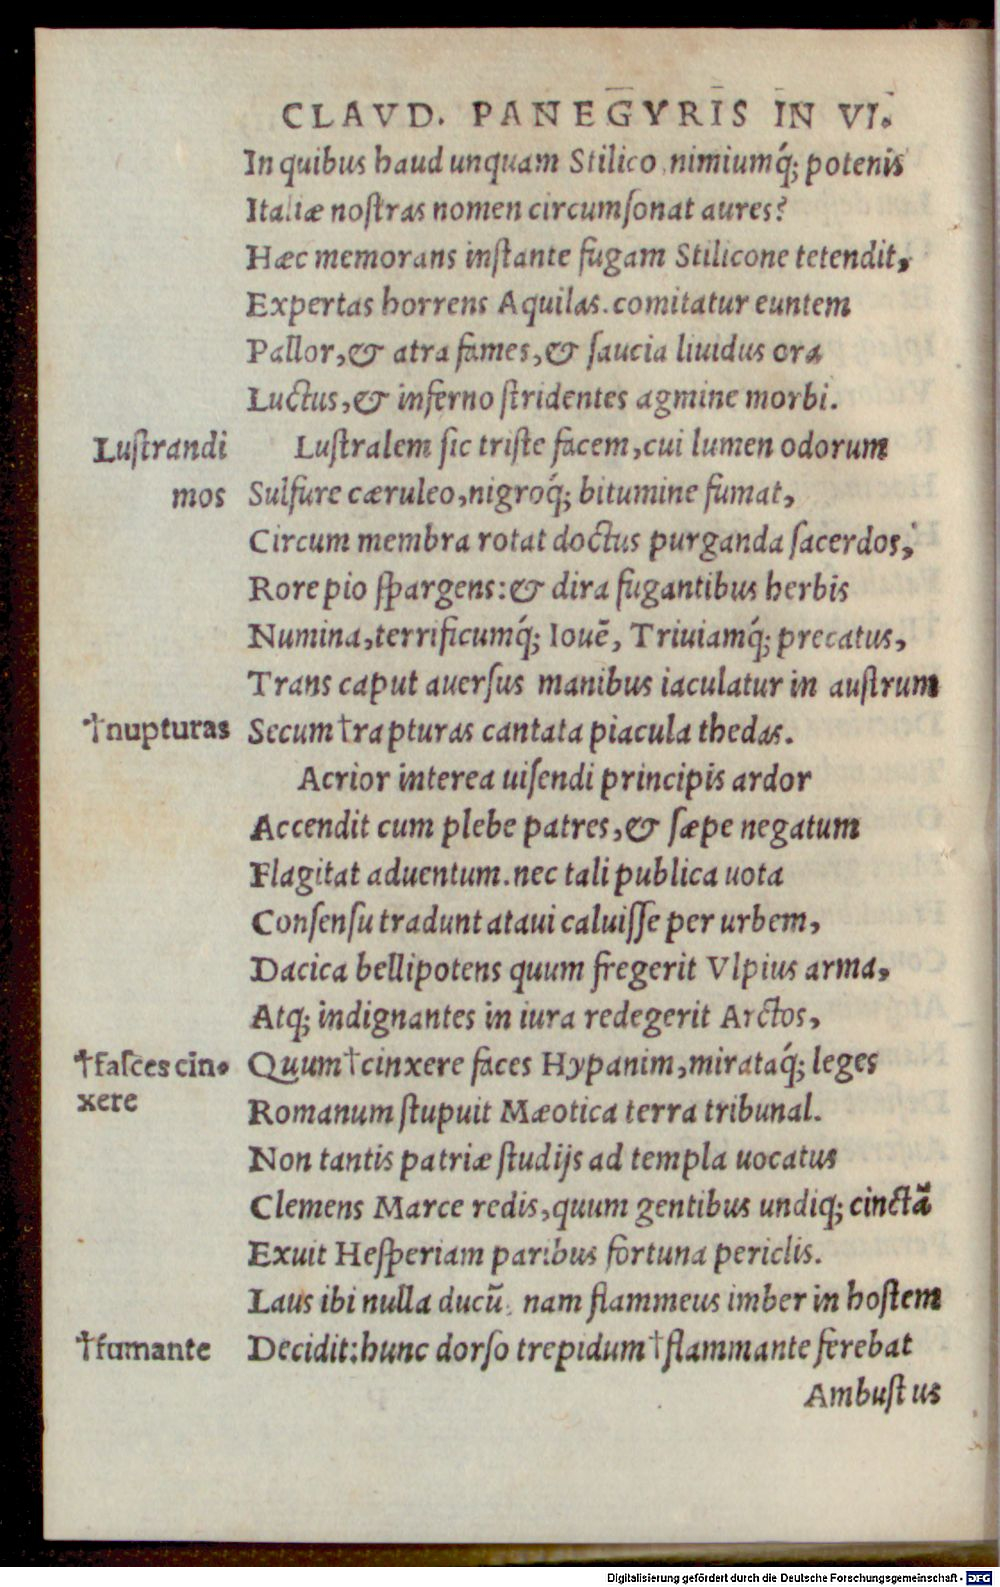 CLAVD. PANEGYRIS IN VI.
In quibus haud unquam Stilico, nimiumq́; potenis
Italiæ nostras nomen circumsonat aures?
Hæc memorans instante fugam Stilicone tetendit,
Expertas horrens Aquilas. comitatur euntem
Pallor, & atra fames, & saucia liuidus ora
Luctus, & inferno stridentes agmine morbi.
Lustrandi
mos
Lustralem sic triste facem, cui lumen odorum
Sulfure cæruleo, nigroq́; bitumine fumat,
Circum membra rotat doctus purganda sacerdos,
Rore pio spargens: & dira fugantibus herbis
Numina, terrificumq́; Iouē, Triuiamq́; precatus,
Trans caput auersus manibus iaculatur in austrum
†nupturas
Secum †rapturas cantata piacula thedas.
Acrior interea uisendi principis ardor
Accendit cum plebe patres, & sæpe negatum
Flagitat aduentum. nec tali publica uota
Consensu tradunt ataui caluisse per urbem,
Dacica bellipotens quum fregerit Vlpius arma,
Atq; indignantes in iura redegerit Arctos,
†fasces cin-
xere
Quum †cinxere faces Hypanim, mirataq́; leges
Romanum stupuit Mæotica terra tribunal.
Non tantis patriæ studijs ad templa uocatus
Clemens Marce redis, quum gentibus undiq; cinctā
Exuit Hesperiam paribus fortuna periclis.
Laus ibi nulla ducū. nam flammeus imber in hostem
†fumante
Decidit: hunc dorso trepidum †flammante ferebat
Ambustus
Digitalisierung gefördert durch die Deutsche Forschungsgemeinschaft - DFG